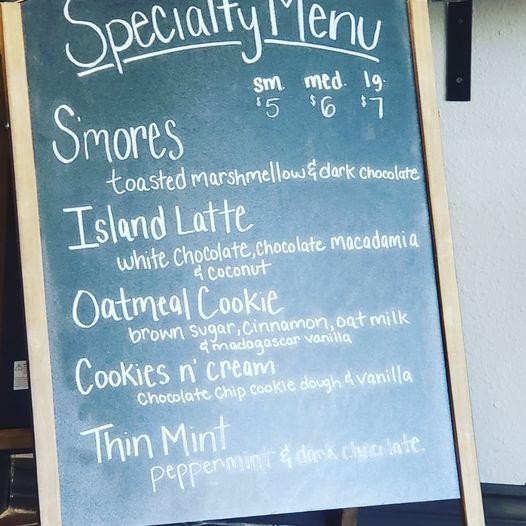 Specialty Menu
sm. med. lg.
$5 $6 $7
S'mores
toasted marshmellow & dark chocolate
Island Latte
white chocolate, chocolate macadamia
& coconut
Oatmeal Cookie
brown sugar, cinnamon, oat milk
& madagascar vanilla
Cookies n' cream
chocolate chip cookie dough & vanilla
Thin Mint
peppermint & dark chocolate.